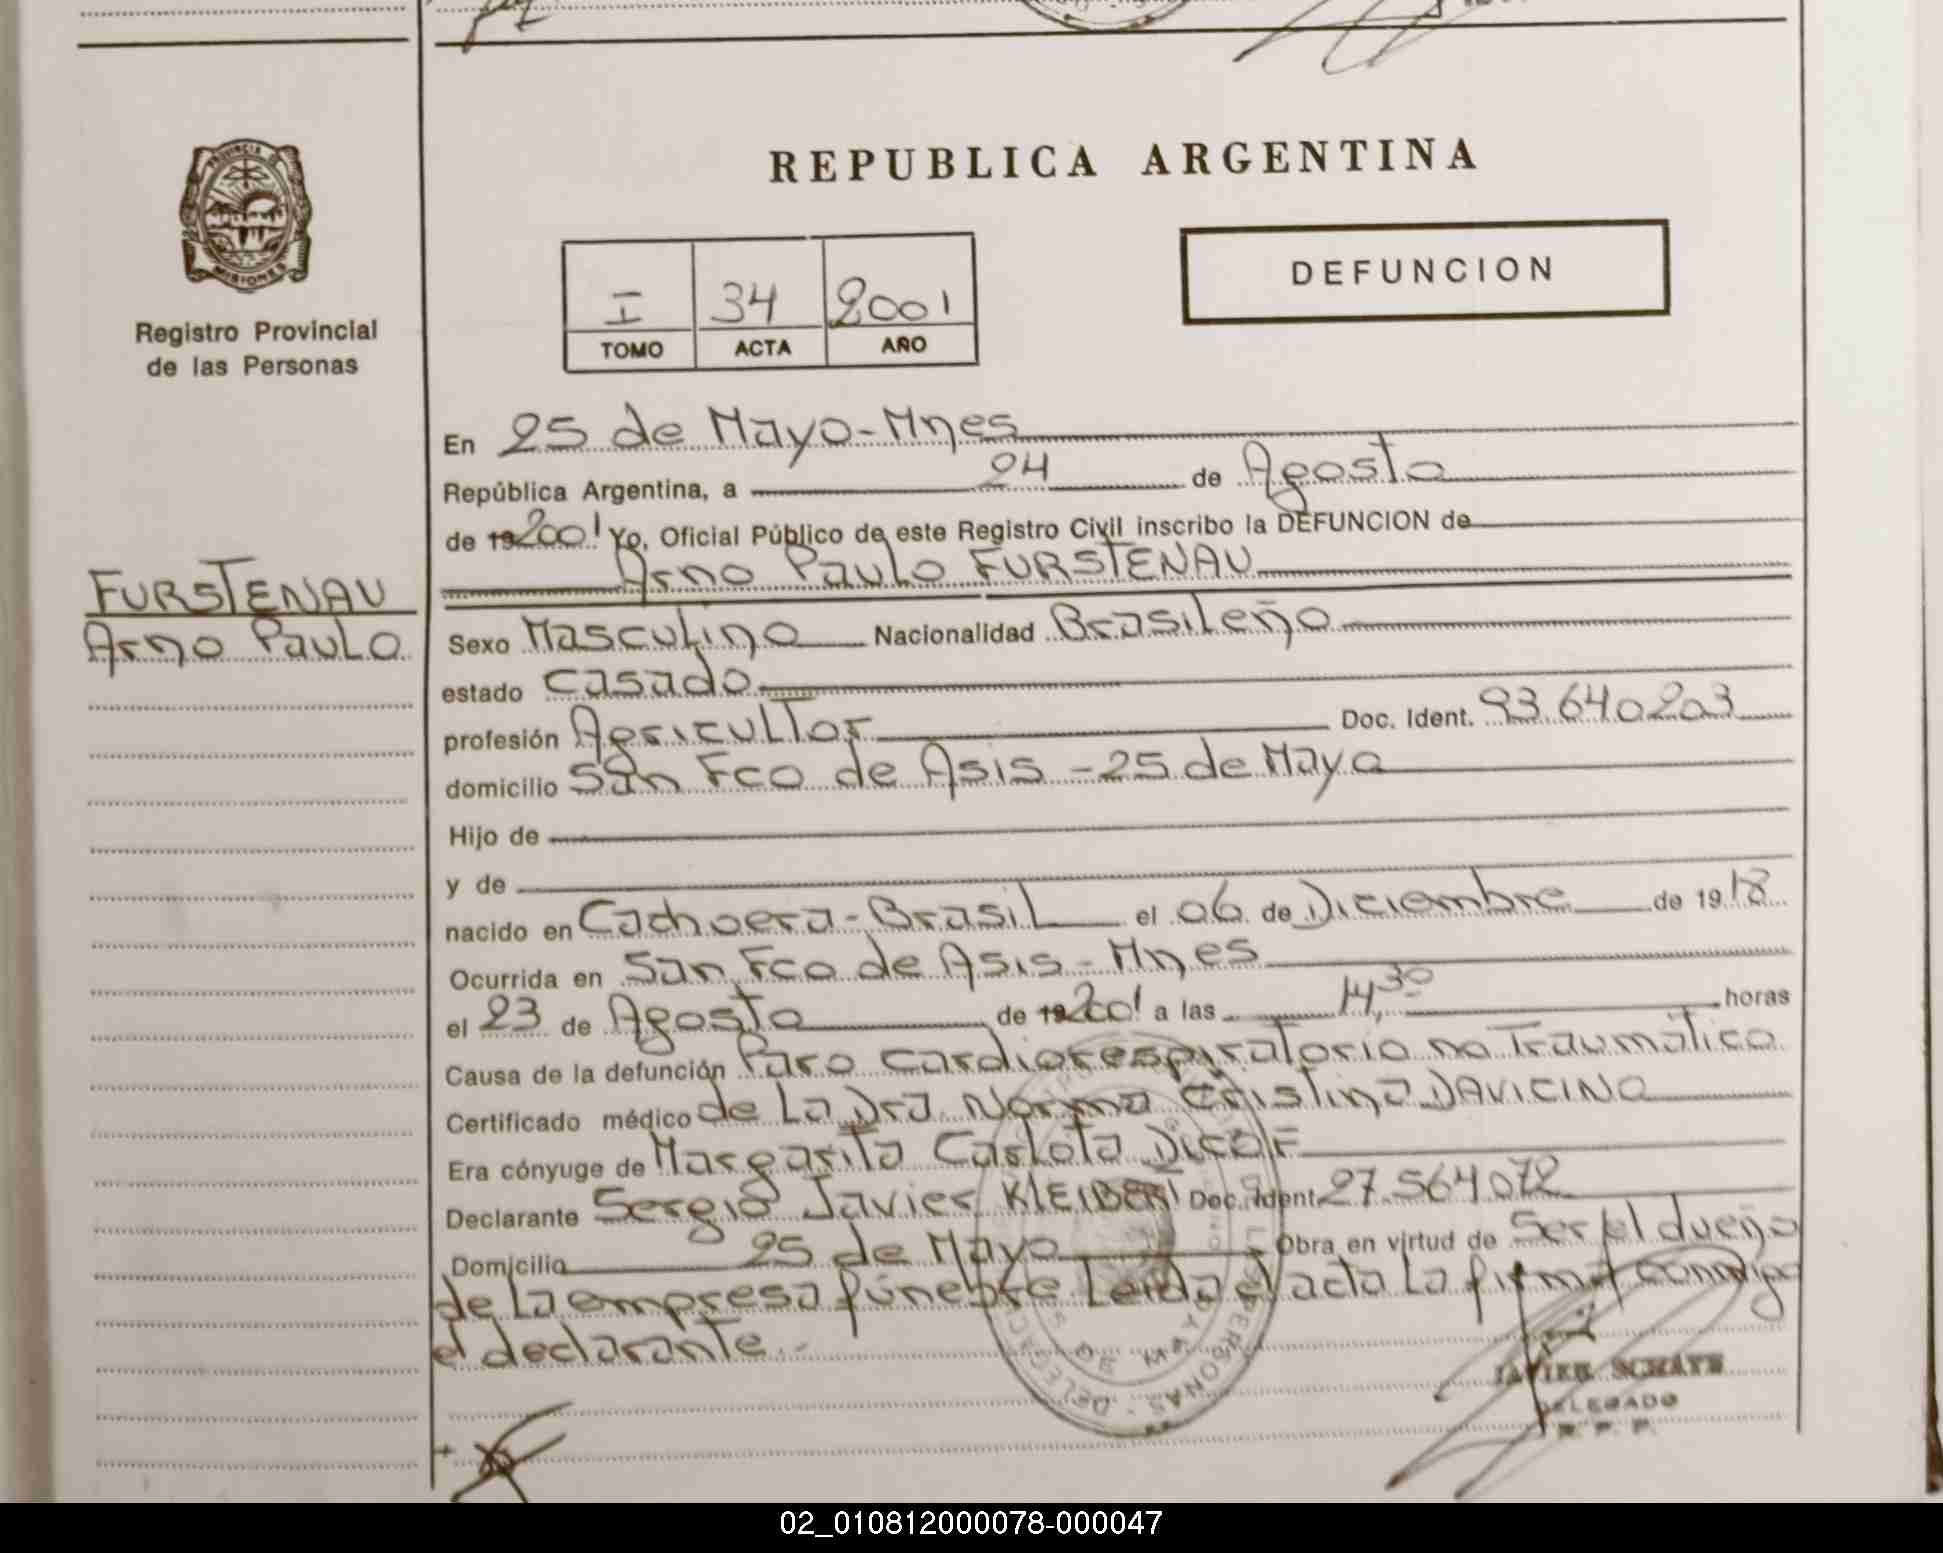 REPUBLICA ARGENTINA
PROVINCIA DE
MISIONES
Registro Provincial
de las Personas
I 34 2001
TOMO ACTA AÑO
DEFUNCION
FURSTENAU
Arno Paulo
En 25 de Mayo-Mnes
República Argentina, a 24 de Agosto
de 19 2001 Yo, Oficial Público de este Registro Civil inscribo la DEFUNCION de
Arno Paulo FURSTENAU
Sexo Masculino Nacionalidad Brasileño
estado Casado
profesión Agricultor Doc. Ident. 93.640203
domicilio San Fco de Asis - 25 de Mayo
Hijo de
y de
nacido en Cachoera-Brasil el 06 de Diciembre de 1918
Ocurrida en San Fco de Asis - Mnes
el 23 de Agosto de 19 2001 a las 14,30 horas
Causa de la defunción Paro cardiorespiratorio no Traumático
Certificado médico de La Dra. Norma Cristina DAVICINO
Era cónyuge de Margarita Carlota
Declarante Sergio Javier KLEIBER Doc. Ident. 27.564072
Domicilio 25 de Mayo Obra en virtud de Ser el dueño
de La empresa fúnebre Leida el acta La firma conmigo
el declarante.-
JAVIER
DELEGADO
R. P. P.
02_010812000078-000047